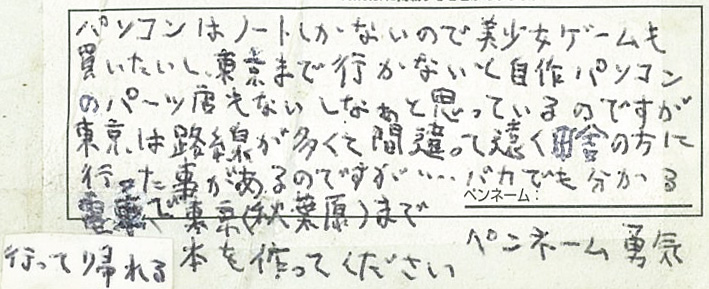 パソコンはノートしかないので美少女ゲームも
買いたいし、東京まで行かないと自作パソコン
のパーツ店もないしなぁと思っているのですが
東京は路線が多くて間違って遠く田舎の方に
行った事があるのですが…バカでも分かる
ペンネーム：
電車で東京(秋葉原)まで
行って帰れる本を作ってください ペンネーム 勇気